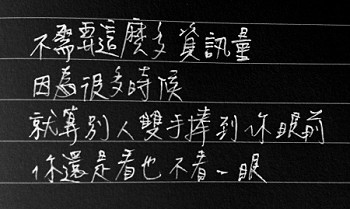 不需要這麼多資訊量
因為很多時候
就算別人雙手捧到你眼前
你還是看也不看一眼